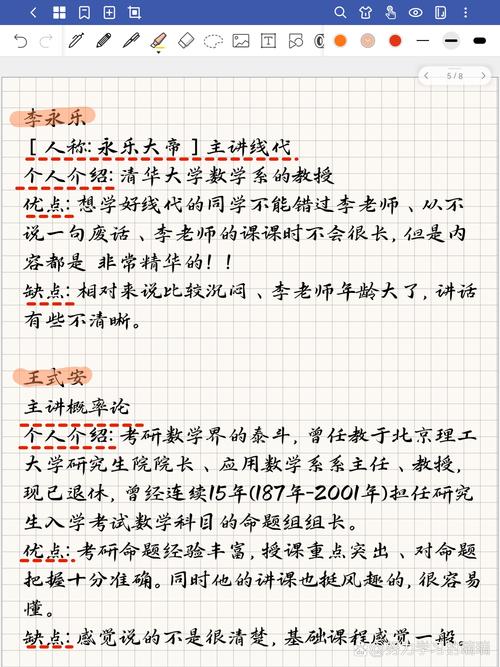 5/8
李永乐
[人称:永乐大帝]主讲线代
个人介绍:清华大学数学系的教授
优点:想学好线代的同学不能错过李老师、从不
说一句废话、李老师的课课时不会很长,但是内
容都是 非常精华的!!
缺点:相对来说比较沉闷、李老师年龄大了,讲话
有些不清晰。
王式安
主讲概率论
个人介绍:考研数学界的泰斗,曾任教于北京理工
大学研究生院院长、应用数学系系主任、教授,
现已退休,曾经连续15年(187年-2001年)担任研究
生入学考试数学科目的命题组组长。
优点:考研命题经验丰富,授课重点突出、对命题
把握十分准确。同时他的讲课也挺风趣的,很容易
懂。
缺点:感觉说的不是很清楚,基础课程感觉一般。